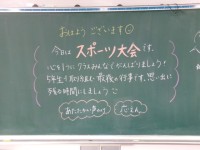 おはようございます
今日は スポーツ大会 です。
心を1つに クラスみんなでがんばりましょう！
5年生 最後の行事です。思い出に
時間にしましょう
あたたかい声かけ 応えん